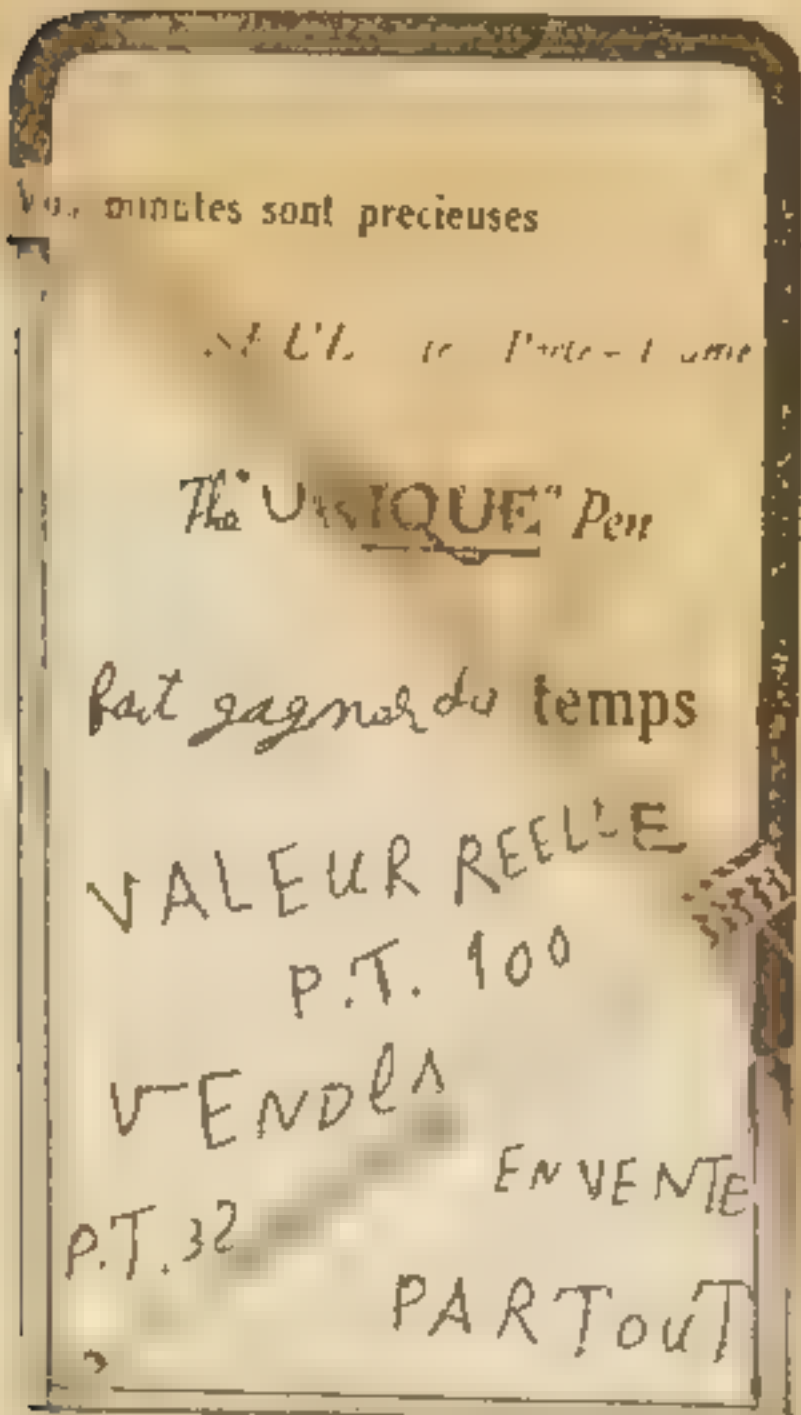 Vos minutes sont precieuses
SEUL le Porte-Plume
The "UNIQUE" Pen
fait gagner du temps
VALEUR REELLE
P.T. 100
VENDUS
EN VENTE
P.T. 32
PARTOUT